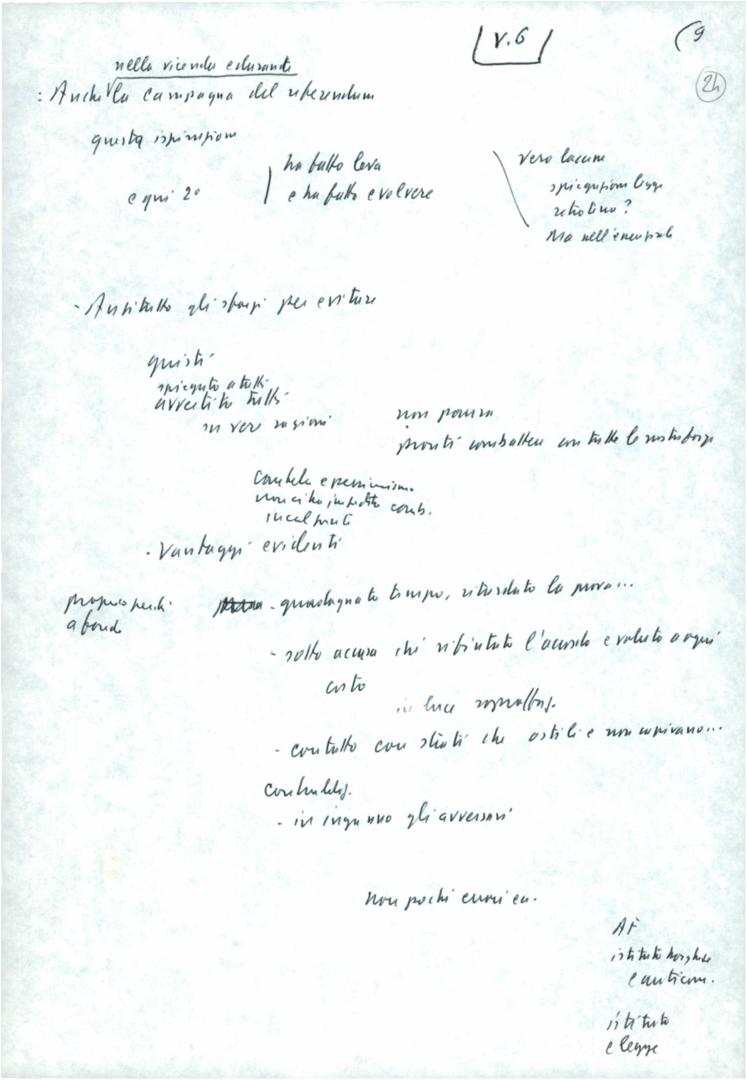 V.6
9
24
nella vicenda
: Anche la campagna del referendum
questa ispirazione
e qui 2°
ha fatto leva
e ha fatto evolvere
vero lacune
spiegazioni legge
Ma nell'
- Anzitutto gli sforzi per evitare
giusti
spiegato a tutti
avvertito tutti
su vere ragioni
non paura
pronti combattere con tutte le nostre forze
Cautela e pessimismo.
non ci ha impedito comb.
- Vantaggi evidenti
proprio perché
a fondo
- guadagnato tempo, ritardato la prova...
- sotto accusa chi rifiutato l'accordo e voluto a ogni
costo
in luce
- contatto con strati che ostili e non capivano...
- in inganno gli avversari
non pochi errori
istituto borghese
e anticom.
istituto
e legge